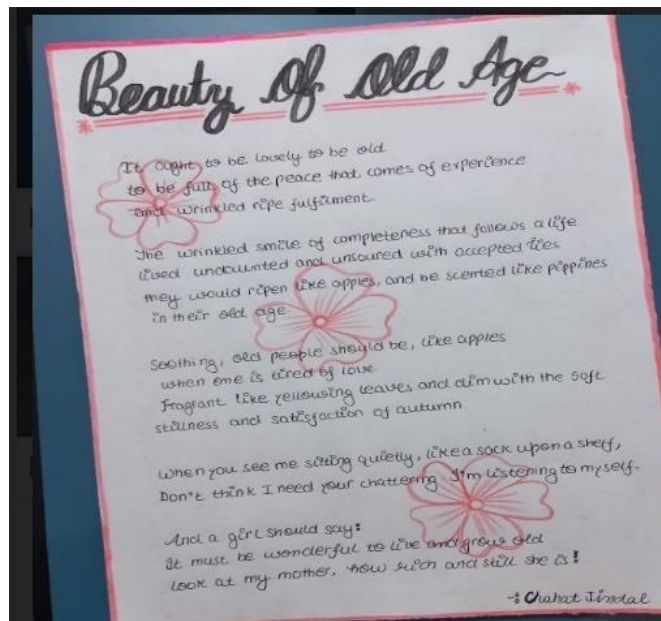 Beauty Of Old Age
It ought to be lovely to be old
to be full of the peace that comes of experience
and wrinkled ripe fulfilment.
The wrinkled smile of completeness that follows a life
lived undaunted and unsoured with accepted lies
they would ripen like apples, and be scented like pippines
in their old age.
Soothing, old people should be, like apples
when one is tired of love
Fragrant like yellowing leaves and dim with the soft
stillness and satisfaction of autumn
When you see me sitting quietly, like a sack upon a shelf,
Don't think I need your chattering. I'm listening to myself.
And a girl should say:
It must be wonderful to live and grow old
look at my mother, how rich and still she is!
-: Chahat Jindal